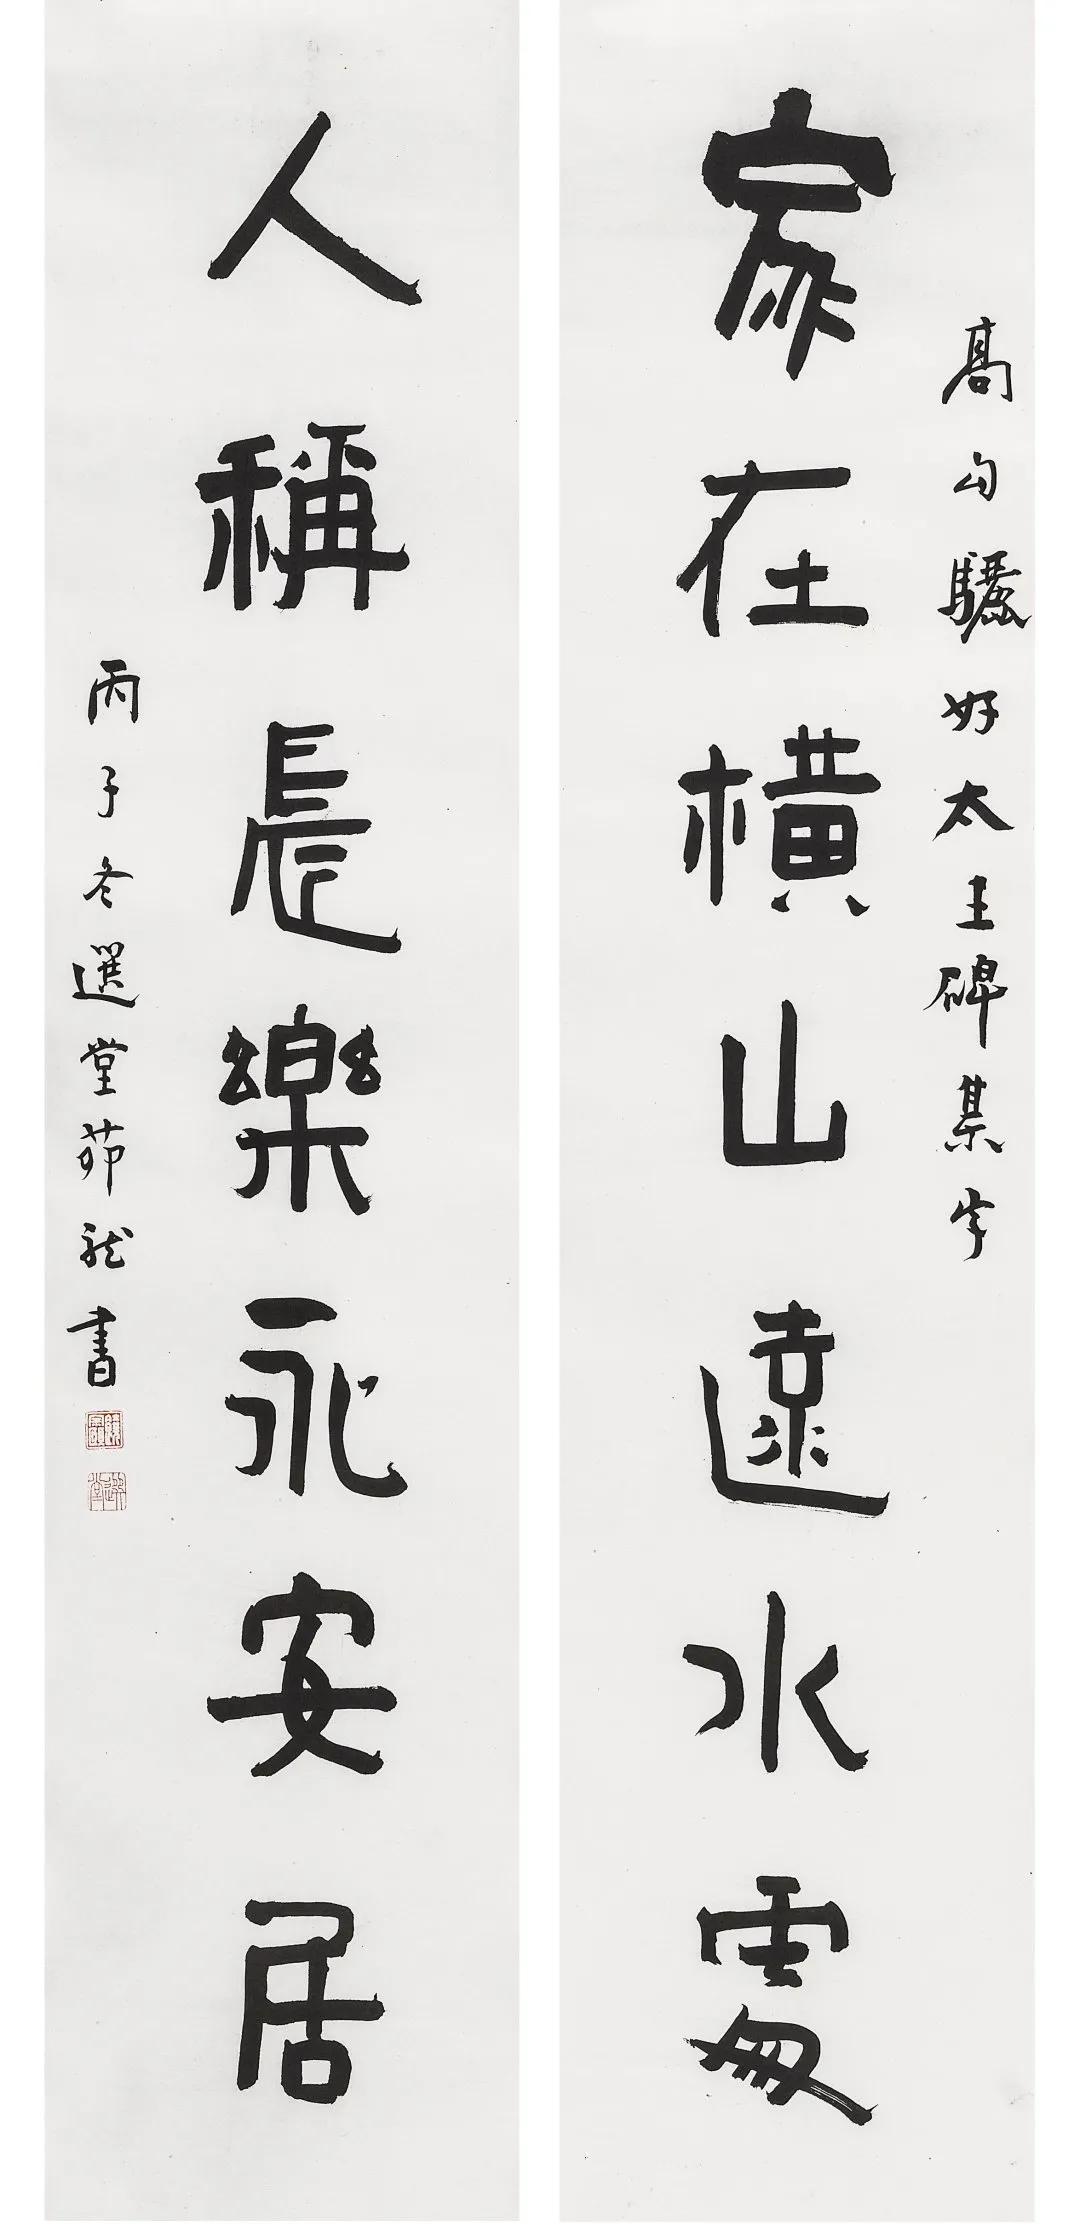 高句驪好太王碑集字
家在橫山遠水處
人稱長樂永安居
丙子冬選堂茆龍書
選堂